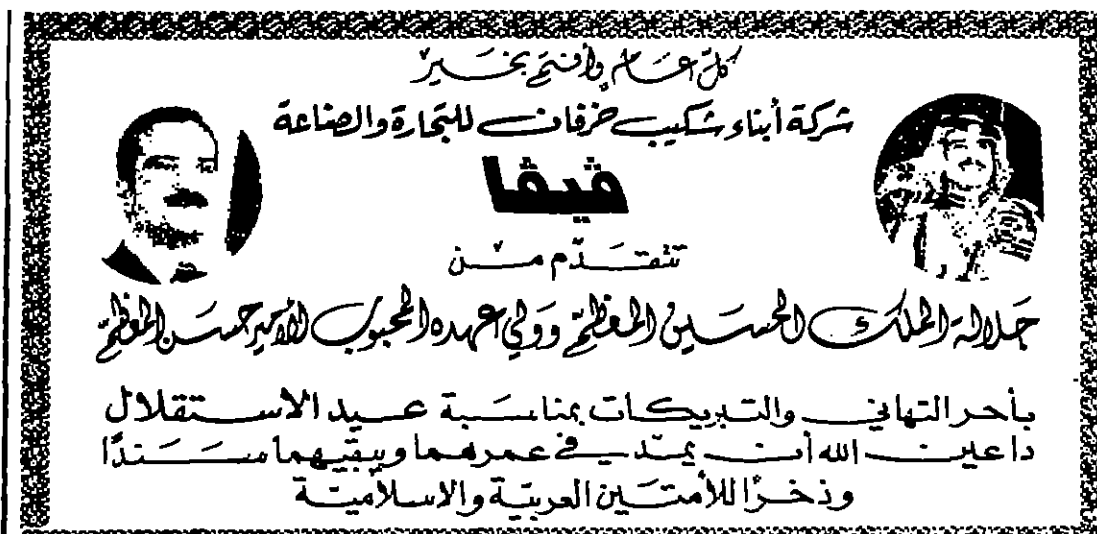 كل عام وأنتم بخير
شركة أبناء شكيب خرفان للتجارة والصناعة
ڤيڤا
تتقدم من
جلالة الملك الحسين المعظم وولي عهده المحبوب الأمير حسن المعظم
بأحر التهاني والتبريكات بمناسبة عيد الاستقلال
داعين الله أن يمد في عمرهما ويبقيهما سندًا
وذخرًا للأمتين العربية والاسلامية